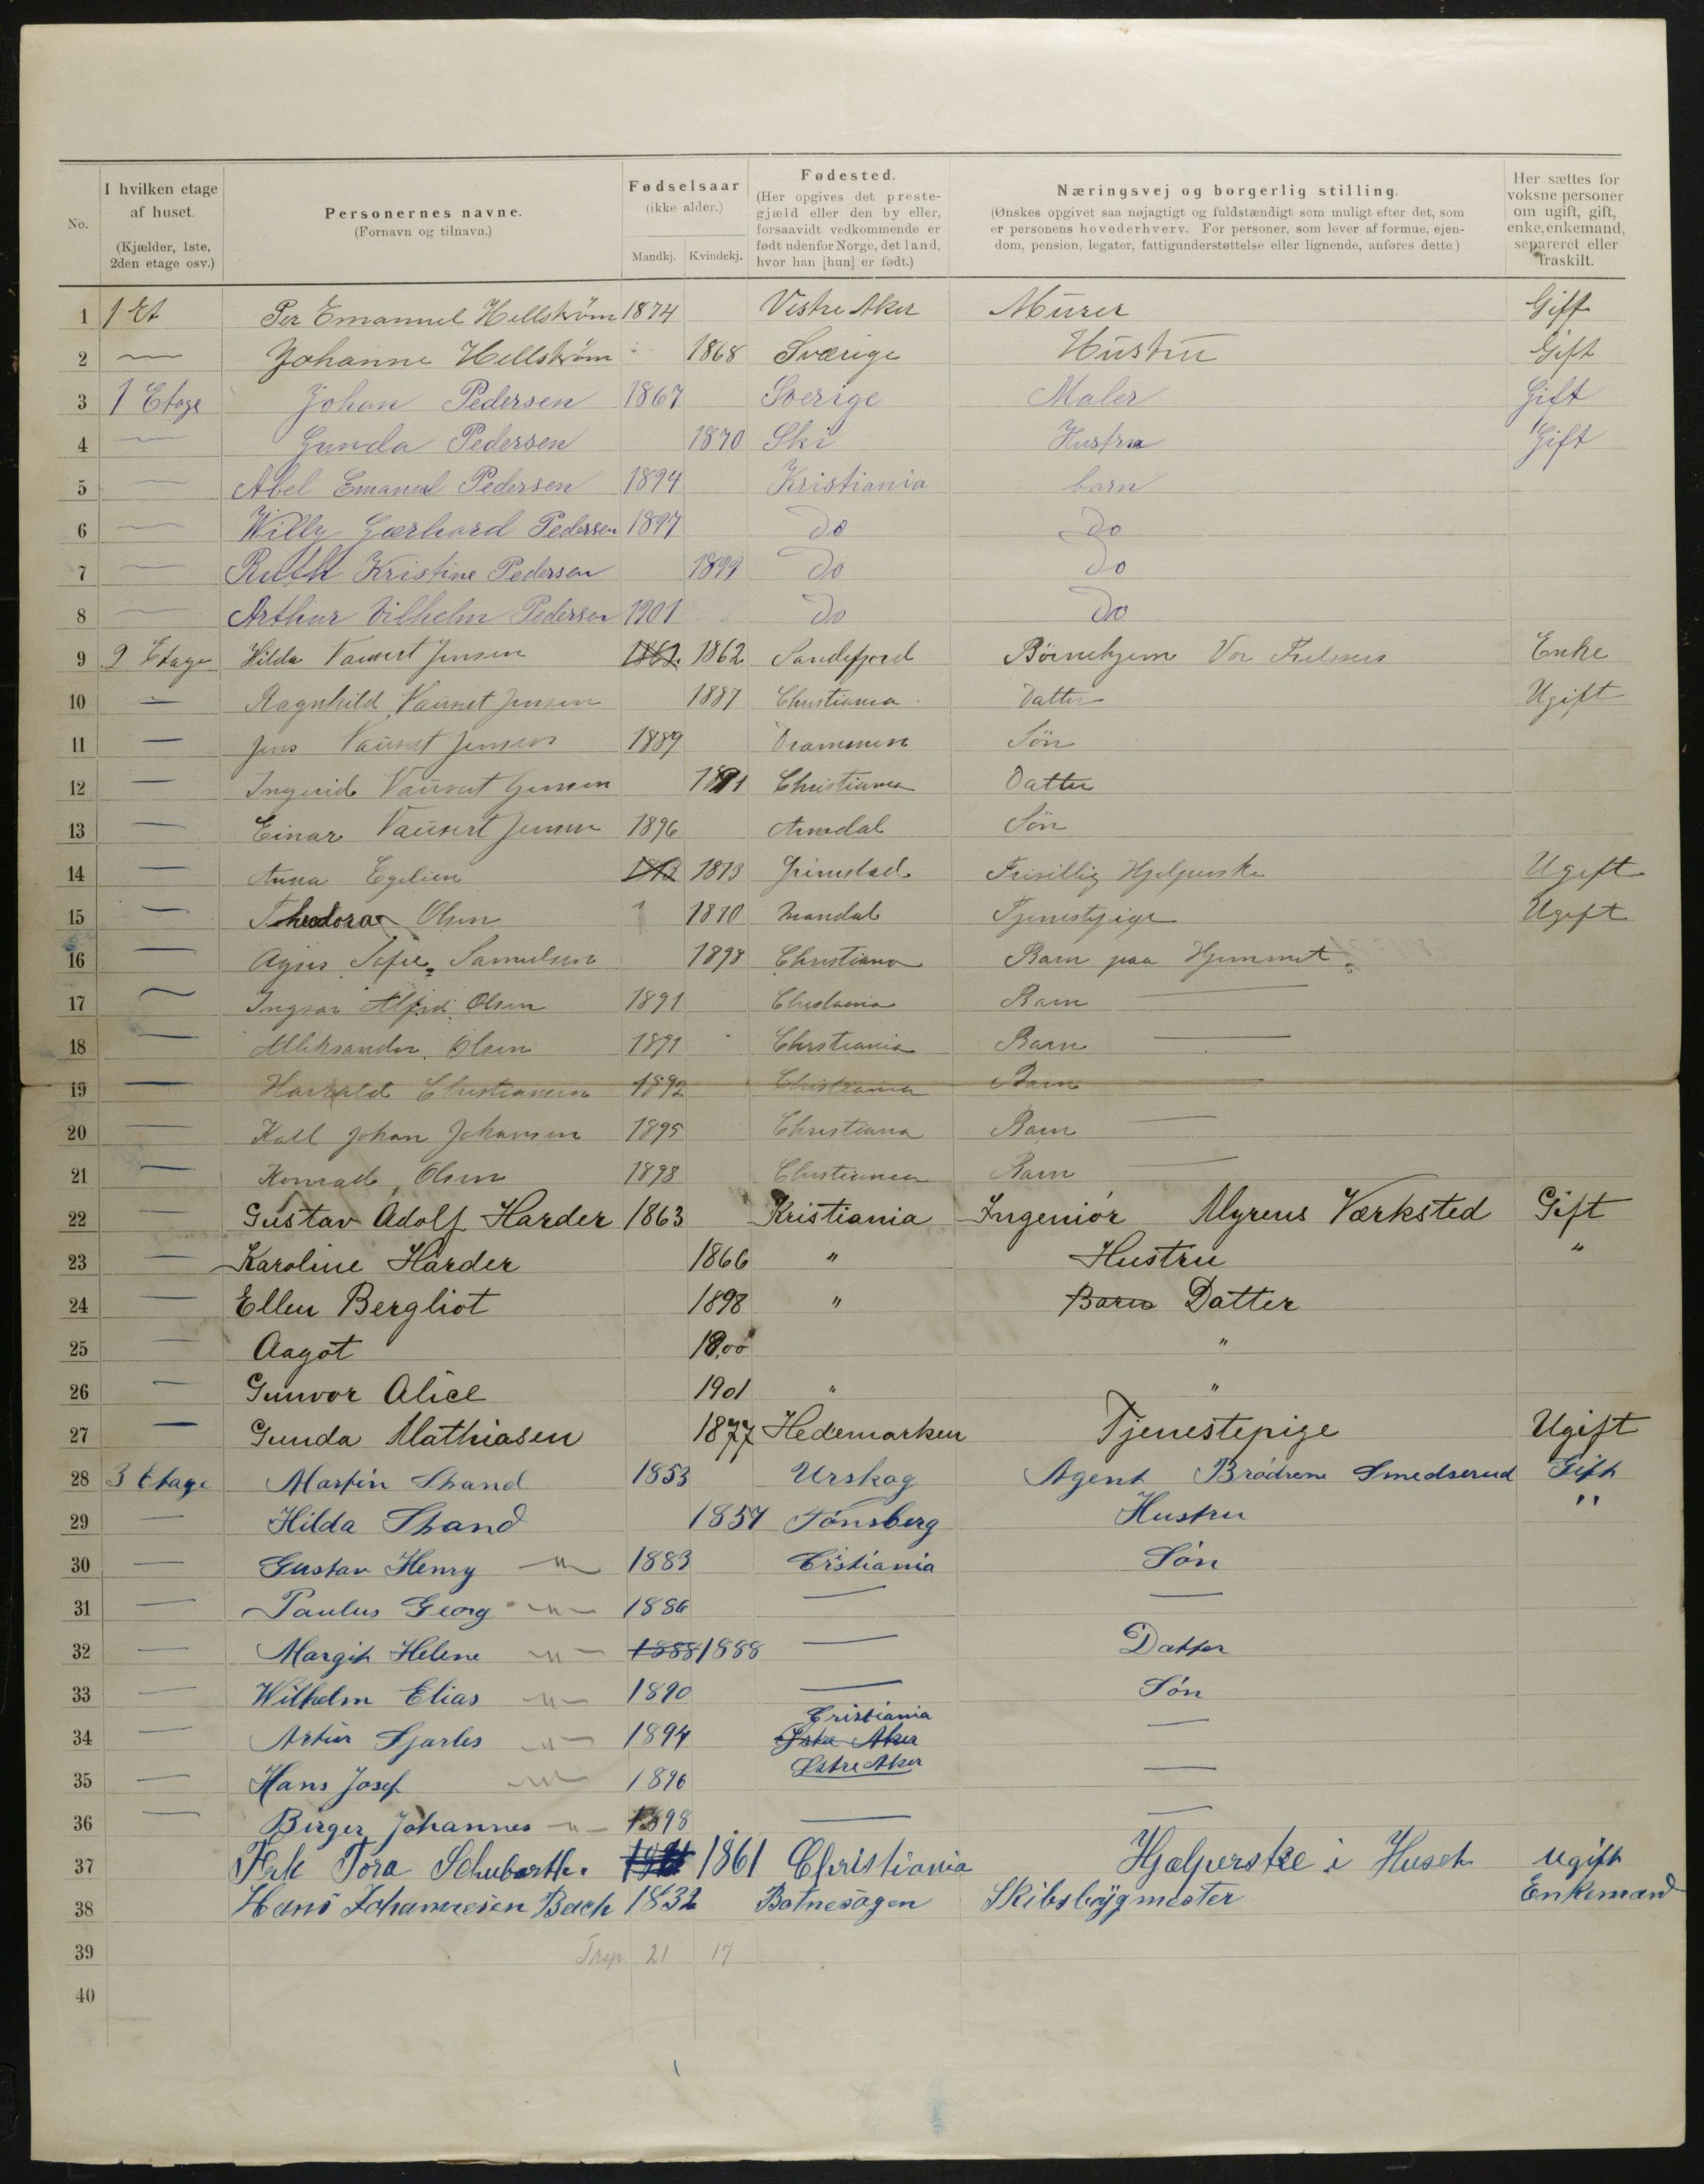 No.
I hvilken etage af huset.
(Kjælder, 1ste, 2den etage osv.)
Personernes navne.
(Fornavn og tilnavn.)
Fødselsaar
(ikke alder.)
Mandkj. Kvindekj.
Fødested.
(Her opgives det prestegjæld eller den by eller, forsaavidt vedkommende er født udenfor Norge, det land, hvor han [hun] er født.)
Næringsvej og borgerlig stilling.
(Ønskes opgivet saa nøjagtigt og fuldstændigt som muligt efter det, som er personens hovederhverv. For personer, som lever af formue, ejendom, pension, legater, fattigunderstøttelse eller lignende, anføres dette)
Her sættes for voksne personer om ugift, gift, enke, enkemand, separeret eller fraskilt.
1 1 Et Per Emanuel Hellstrøm 1874 Vestre Aker Murer Gift
2 — Johanne Hellstrøm 1868 Sværige Hustru Gift
3 1 Etage Johan Pedersen 1867 Sverige Maler Gift
4 — Gunda Pedersen 1870 Ski Hustru Gift
5 — Abel Emanuel Pedersen 1894 Kristiania barn
6 — Willy Gærhard Pedersen 1897 do do
7 — Ruth Kristine Pedersen 1899 do do
8 — Arthur Vilhelm Pedersen 1901 do do
9 2 Etage Hilda Jensen 1862 1862 Sandefjord Børnehjem Vor Frelsers Enke
10 — Ragnhild Jensen 1887 Christiania Datter Ugift
11 — Jens Jensen 1889 Drammen Søn
12 — Ingerid Jensen 1891 Christiania Datter
13 — Einar Jensen 1896 Arendal Søn
14 — Anna Egelien 1873 1873 Grimstad Frivillig Hjelperske Ugift
15 — Theodora Olsen 1870 Mandal Tjenestepige Ugift
16 — Agnes Sofie Samuelsen 1898 Christiania Barn paa Hjemmet
17 — Ingvar Olsen 1891 Christiania Barn —
18 — Alleksander Olsen 1891 Christiania Barn —
19 — Harrald Christiansen 1892 Christiania Barn —
20 — Kall Johan Johansen 1895 Christiania Barn —
21 — Konrad Olsen 1898 Christiania Barn —
22 — Gustav Adolf Harder 1863 Kristiania Ingeniør Myrens Værksted Gift
23 — Karoline Harder 1866 " Hustru "
24 — Ellen Bergliot 1898 " Barn Datter
25 — Aagot 1900 "
26 — Gunvor Alice 1901 " "
27 — Gunda Mathiasen 1877 Hedemarken Tjenestepige Ugift
28 3 Etage Martin Strand 1853 Urskog Agent Brødrene Smedserud Gift
29 — Hilda Strand 1857 Tønsberg Hustru "
30 — Gustav Henry —"— 1883 Cristiania Søn
31 — Paulus Georg —"— 1886 — —
32 — Margit Helene —"— 1888 1888 — Datter
33 — Wilhelm Elias —"— 1890 — Søn
34 — Artur Sjarles —"— 1894 Cristiania Østre Aker —
35 — Hans Josef —"— 1896 Østre Aker —
36 — Birger Johannes —"— 1898 — —
37 Frk Tora Schubarth. 1861 1861 Christiania Hjælperske i Huset ugift
38 Hans Johannesen Bach 1832 Botnesogen Skibsbygmester Enkemand
39 21 17
40